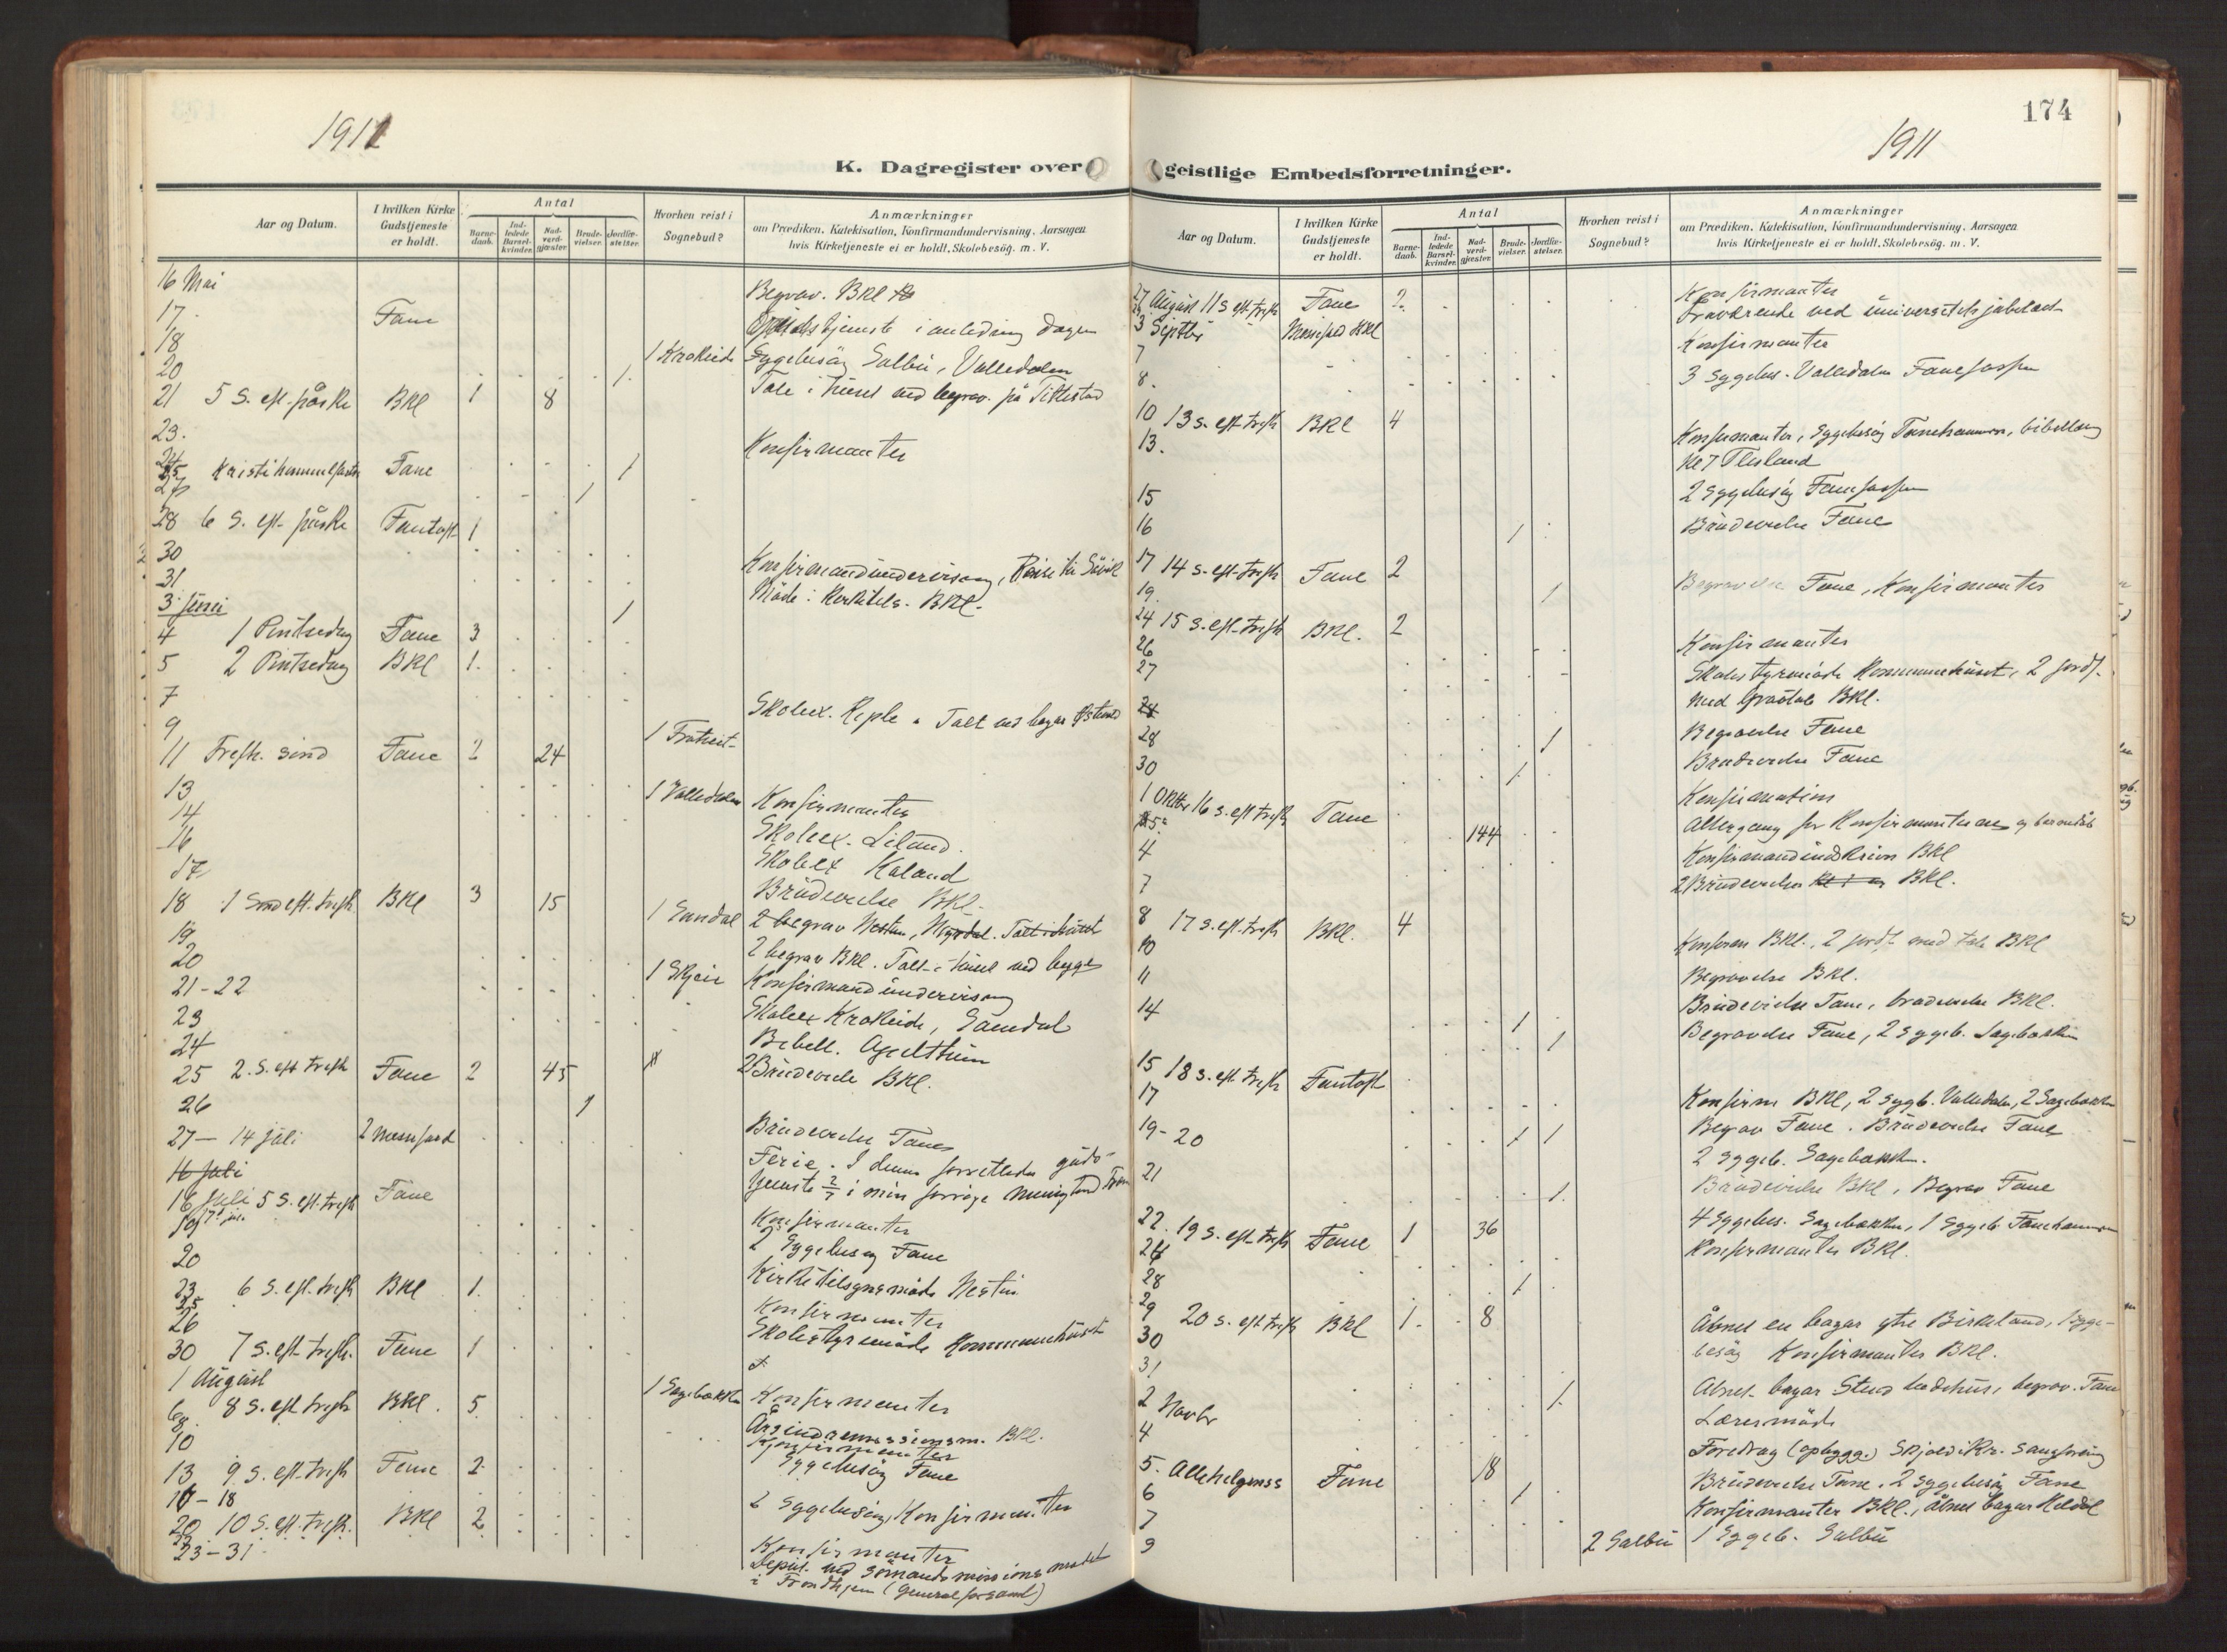 1911
K. Dagregister over
Aar og Datum.
I hvilken Kirke Gudstjeneste er holdt.
Antal
Barne-daab.
Ind-ledede Barsel-kvinder.
Nad-verd-gjæster.
Brude-vielser.
Jordfæ-stelser.
Hvorhen reist i Sognebud?
Anmærkninger
om Prædiken, Katekisation, Konfirmandundervisning, Aarsagen
hvis Kirketjeneste ei er holdt, Skolebesög. m. V.
16 Mai Begrav. BKl
17. Fane i anledning dagen
18
20 1 Krokeide Sygebesög Salbu, Valledalen
21 5 S. eft. påske BKl 1 8 Tale i huset ved begrav. på Titlestad
23. Konfirmanter
25 Kristi himmelfarts Fane
27
28 6 S. eft. påske Fantoft 1
30 Konfirmandundervisning,
31 BKl.
3 juni 1
4 1 Pintsedag Fane 3
5 2 Pintsedag BKl 1
7 Skoleex.
9
11 Trefh. sönd Fane 2 24
13 1 Valledalen Konfirmanter
14 Skoleex. Liland.
16 Skoleex Kaland
17 Brudevielse BKl.
18 1 Sönd eft. trefh BKl 3 15
19 1 Sandal 2 begrav
20 2 begrav BKl. Tale i huset ved begge
21-22 1 Skjeie Konfirmandundervisning
23 Skoleex Krokeide, Sandal
24 Bibell.
25 2. S. eft trefh Fane 2 45 2 Brudeviele BKl.
26 1
27 - 14 juli Brudevielse Fane
16 juli Ferie. I denne forrettede guds-
16 Juli 5 S. eft. trefh Fane tjeneste 2/7 i min forrige menighed
19 Konfirmanter
20 2 Sygebesög Fane
23 6 S. eft. trefh BKl 1.
25 Konfirmanter
26 Skolestyremöde Kommunehuset
30 7 S. eft. trefh. Fane 1
1 August
6 8 S. eft trefh BKl. 5. 1 Sagebakken Konfirmanter
8.
10 Konfirmanter
13 9 S. eft. trefh Fane 2. Sygebesög Fane
16-18 2 Sygebesög, Konfirmanter
20 10 S. eft. trefh. BKl 2
23-31 Konfirmanter
ved Sömandsmissions mödet
i Trondhjem (Generalforsaml)
174
1911
geistlige Embedsforretninger.
Aar og Datum.
I hvilken Kirke Gudstjeneste er holdt.
Antal
Barne-daab.
Ind-ledede Barsel-kvinder.
Nad-verd-gjæster.
Brude-vielser.
Jordfæ-stelser.
Hvorhen reist i Sognebud?
Anmærkninger
om Prædiken, Katekisation, Konfirmandundervisning, Aarsagen
hvis Kirketjeneste ei er holdt, Skolebesög. m. V.
27 August 11 S eft trefh Fane 2. Konfirmanter
3 Septbr Messefald BKl Fraværende ved universitetsjubilæet
7 Konfirmanter
8. 3 Sygebes. Valledalen
10 13 S. eft trefh BKl 4
13. Konfirmanter, Sygebesög Fanehammeren,
Flesland
15 2 Sygebesög
16 1 Brudevielse Fane
17 14 S. eft. trefh Fane 2
19. 1 Begravelse Fane, Konfirmanter
24 15 S. eft. trefh BKl. 2
26 Konfirmanter
27 Skolestyremöde Kommunehuset, 2 jordf.
med Gravtale BKl.
28 1 Begravelse Fane
30 1 Brudevielse Fane
1 Oktbr 16 S. eft trefh Fane Konfirmation
144 Altergang for Konfirmanterne
4 BKl
7 2 Brudevielser BKl.
8 17 S. eft. trefh BKl. 4
10 BKl., 2 jordf. med tale BKl
11 Begravelse BKl.
14 1 Brudevielse Fane, brudevielse BKl.
1 Begravelse Fane, 2 sygeb. Sagebakken
15 18 S. eft. trefh Fantoft
17 Konfirm BKl, 2 sygb. Valledalen, 2 Sagebakken
19-20 1 1 Begrav Fane. Brudevielse Fane
2 sygeb. Sagebakken.
21 1. Brudevielse BKl, Begrav Fane
22. 19 S. eft. trefh Fane 1 36 4 Sygebes. Sagebakken, 1 Sygeb Fanehammeren
24 Konfirmanter BKl.
28 1
29 20 S. eft trefh BKl 1. 8 Åbnet en bazar ytre Birkeland, Syge-
30 besög Konfirmanter BKl.
31 Åbnet bazar Stend bedehus, begrav. Fane
2 Novbr 1. Læremöde
4 Foredrag (opbygg.)
5. Allehelgenss Fane 18 Brudevielse Fane. 2 Sygebesög Fane
6 1 Konfirmanter BKl., åbnet bazar
7
9 2 Salbu 1 Sygeb. Salbu